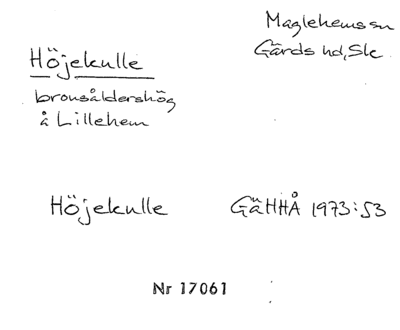 Maglehems sn
Gärds hd, Sk
Höjekulle
bronsåldershög
å Lillehem
Höjekulle GäHHÅ 1973:53
Nr 17061